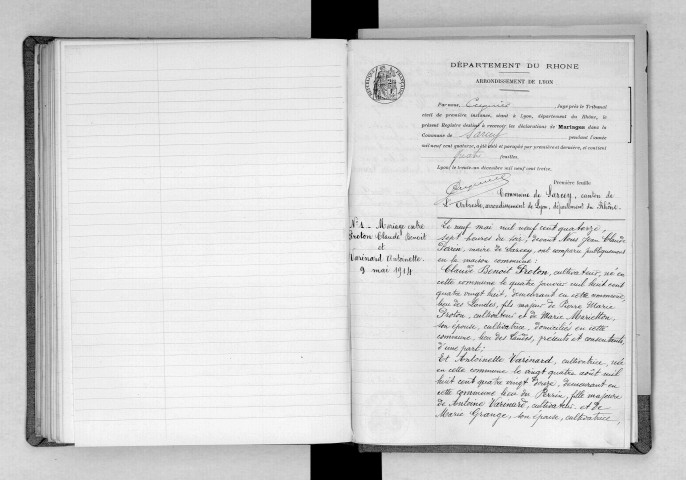 DÉPARTEMENT DU RHONE
ARRONDISSEMENT DE LYON
Par nous, Cuginier, Juge près le Tribunal
civil de première instance, séant à Lyon, département du Rhône, le
présent Registre destiné à recevoir les déclarations de Mariages dans la
Commune de Sarcey pendant l'année
mil neuf cent quatorze, a été coté et paraphé par première et dernière, et contient
quatre feuilles.
Lyon, le trente-un décembre mil neuf cent treize.
Première feuille
Commune de Sarcey, canton de
l'Arbresle, arrondissement de Lyon, département du Rhône.
N° 1 - Mariage entre
Proton Claude Benoit
et
Varinard Antoinette.
9 mai 1914
Le neuf mai mil neuf cent quatorze
sept heures du soir, devant Nous Jean Claude
Perrin, maire de Sarcey, ont comparu publiquement
en la maison commune:
Claude Benoit Proton, cultivateur, né en
cette commune le quatre janvier mil huit cent
quatre vingt huit, demeurant en cette commune,
lieu des Landes, fils majeur de Pierre Marie
Proton, cultivateur et de Marie Marietton,
son épouse, cultivatrice, domiciliés en cette
commune, lieu des Landes, présents et consentants,
d'une part;
Et Antoinette Varinard, cultivatrice, née
en cette commune le vingt quatre août mil
huit cent quatre vingt treize, demeurant en
cette commune lieu du Perrin, fille majeure
de Antoine Varinard, cultivateur et de
Marie Grange, son épouse, cultivatrice,